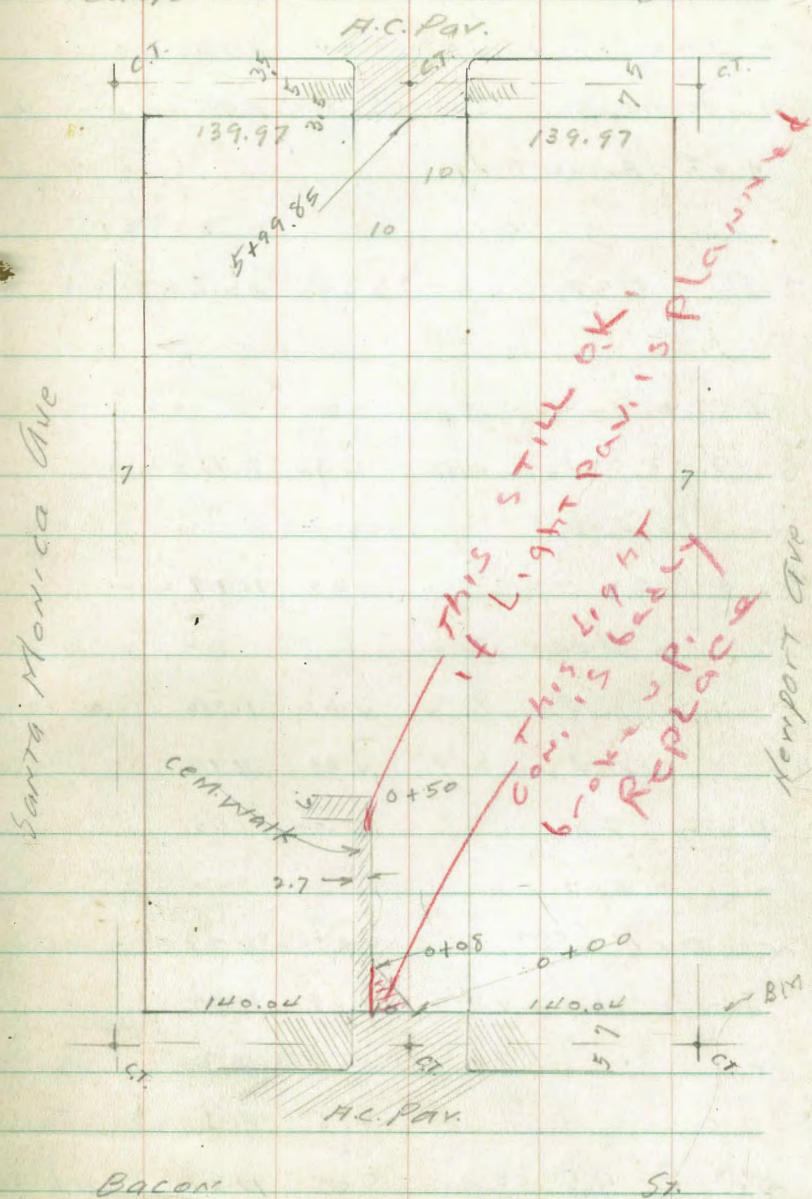 A.C. Pav.
C.T.
3.5
C.T.
5
C.T.
5
7
3.5
139.97
139.97
10
5+99.85
10
Santa Monica Ave
7
7
Newport Ave
This still O.K.
if Light Pav. is planned
This Light
Con. is badly
broke up.
Replace
Cem. Walk
0+50
2.7
0+08
0+00
140.04
10
140.04
BM
7
5
C.T.
C.T.
C.T.
A.C. Pav.
Bacon St.